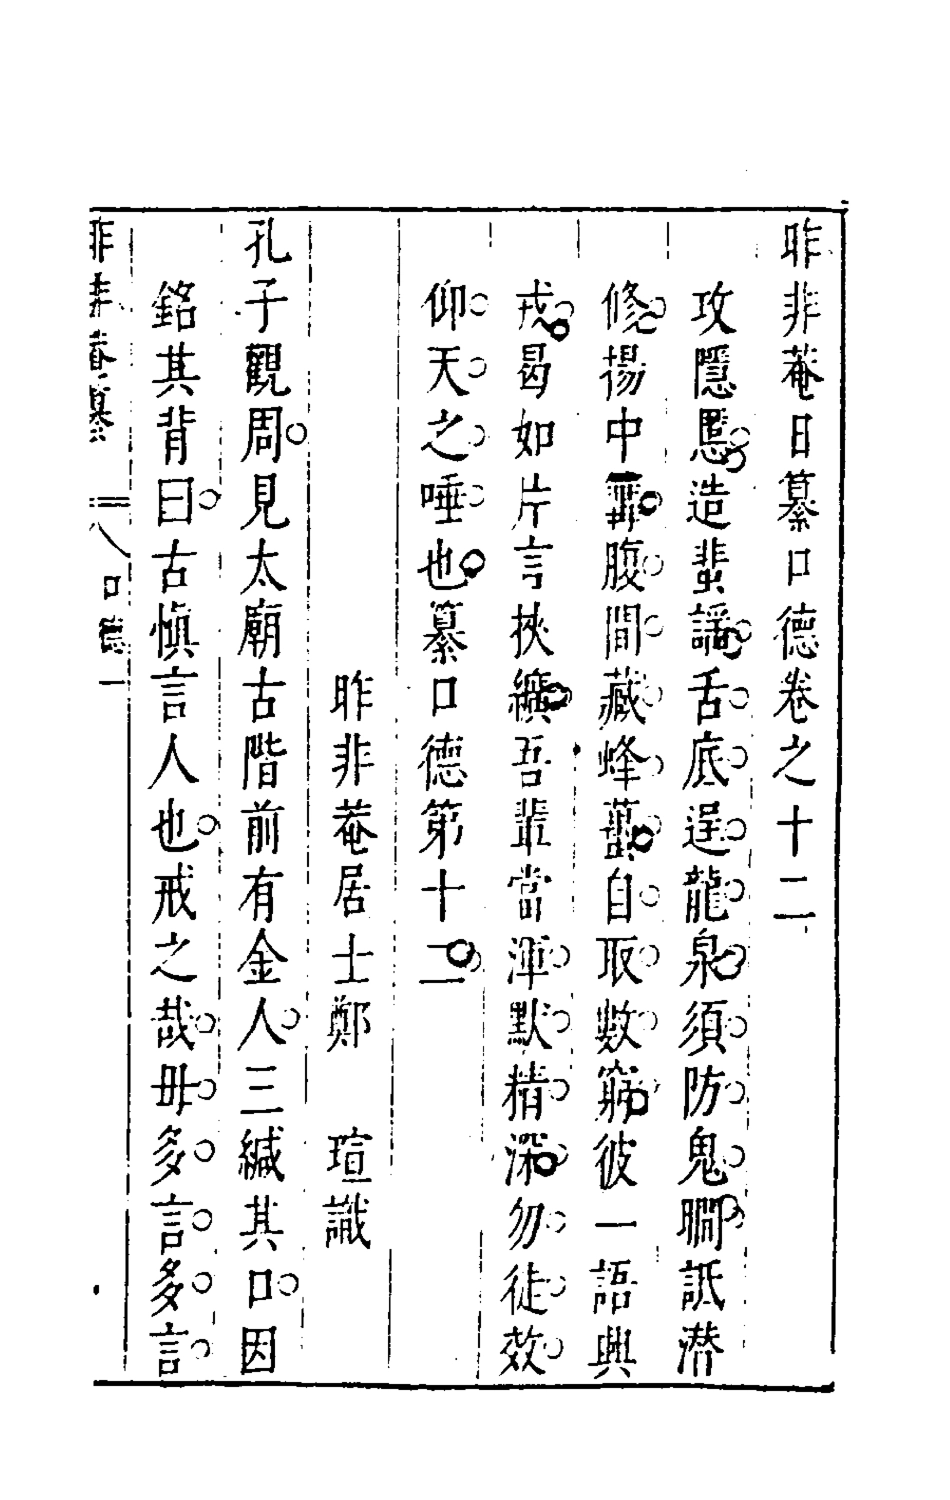 昨非菴日纂口德卷之十二
攻隱慝造蜚謡舌底逞龍泉須防鬼瞯詆潛
修揚中冓腹間藏蜂蠆自取數窮彼一語興
戎曷如片言挾纊吾輩當渾默精深勿徒效
仰天之唾也纂口德第十二
昨非菴居士鄭瑄識
孔子觀周見太廟古階前有金人三緘其口因
銘其背曰古慎言人也戒之哉毋多言多言
昨非菴日纂 口德 一